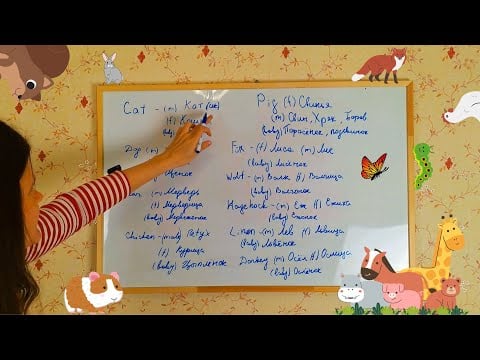 Cat - (m) Кот(ик)
(f) Кошк
(baby)
Dog (m)
Щенок
(m) Медведь
(f) Медведица
(baby) Медвежонок
Chicken - (male) Петух
(f) Курица
(baby) Цыпленок
Pig (f) Свинья
(m) Свин, Хряк, Боров
(baby) Поросенок, подсвинок
Fox - (f) Лиса (m) Лис
(baby) Лисёнок
Wolf - (m) Волк (f) Волчица
(baby) Волчонок
(m) Еж (f) Ежиха
(baby) Ежонок
(m) Лев (f) Львица
(baby) Львёнок
Donkey (m) Осёл (f) Ослица
(baby) Ослёнок